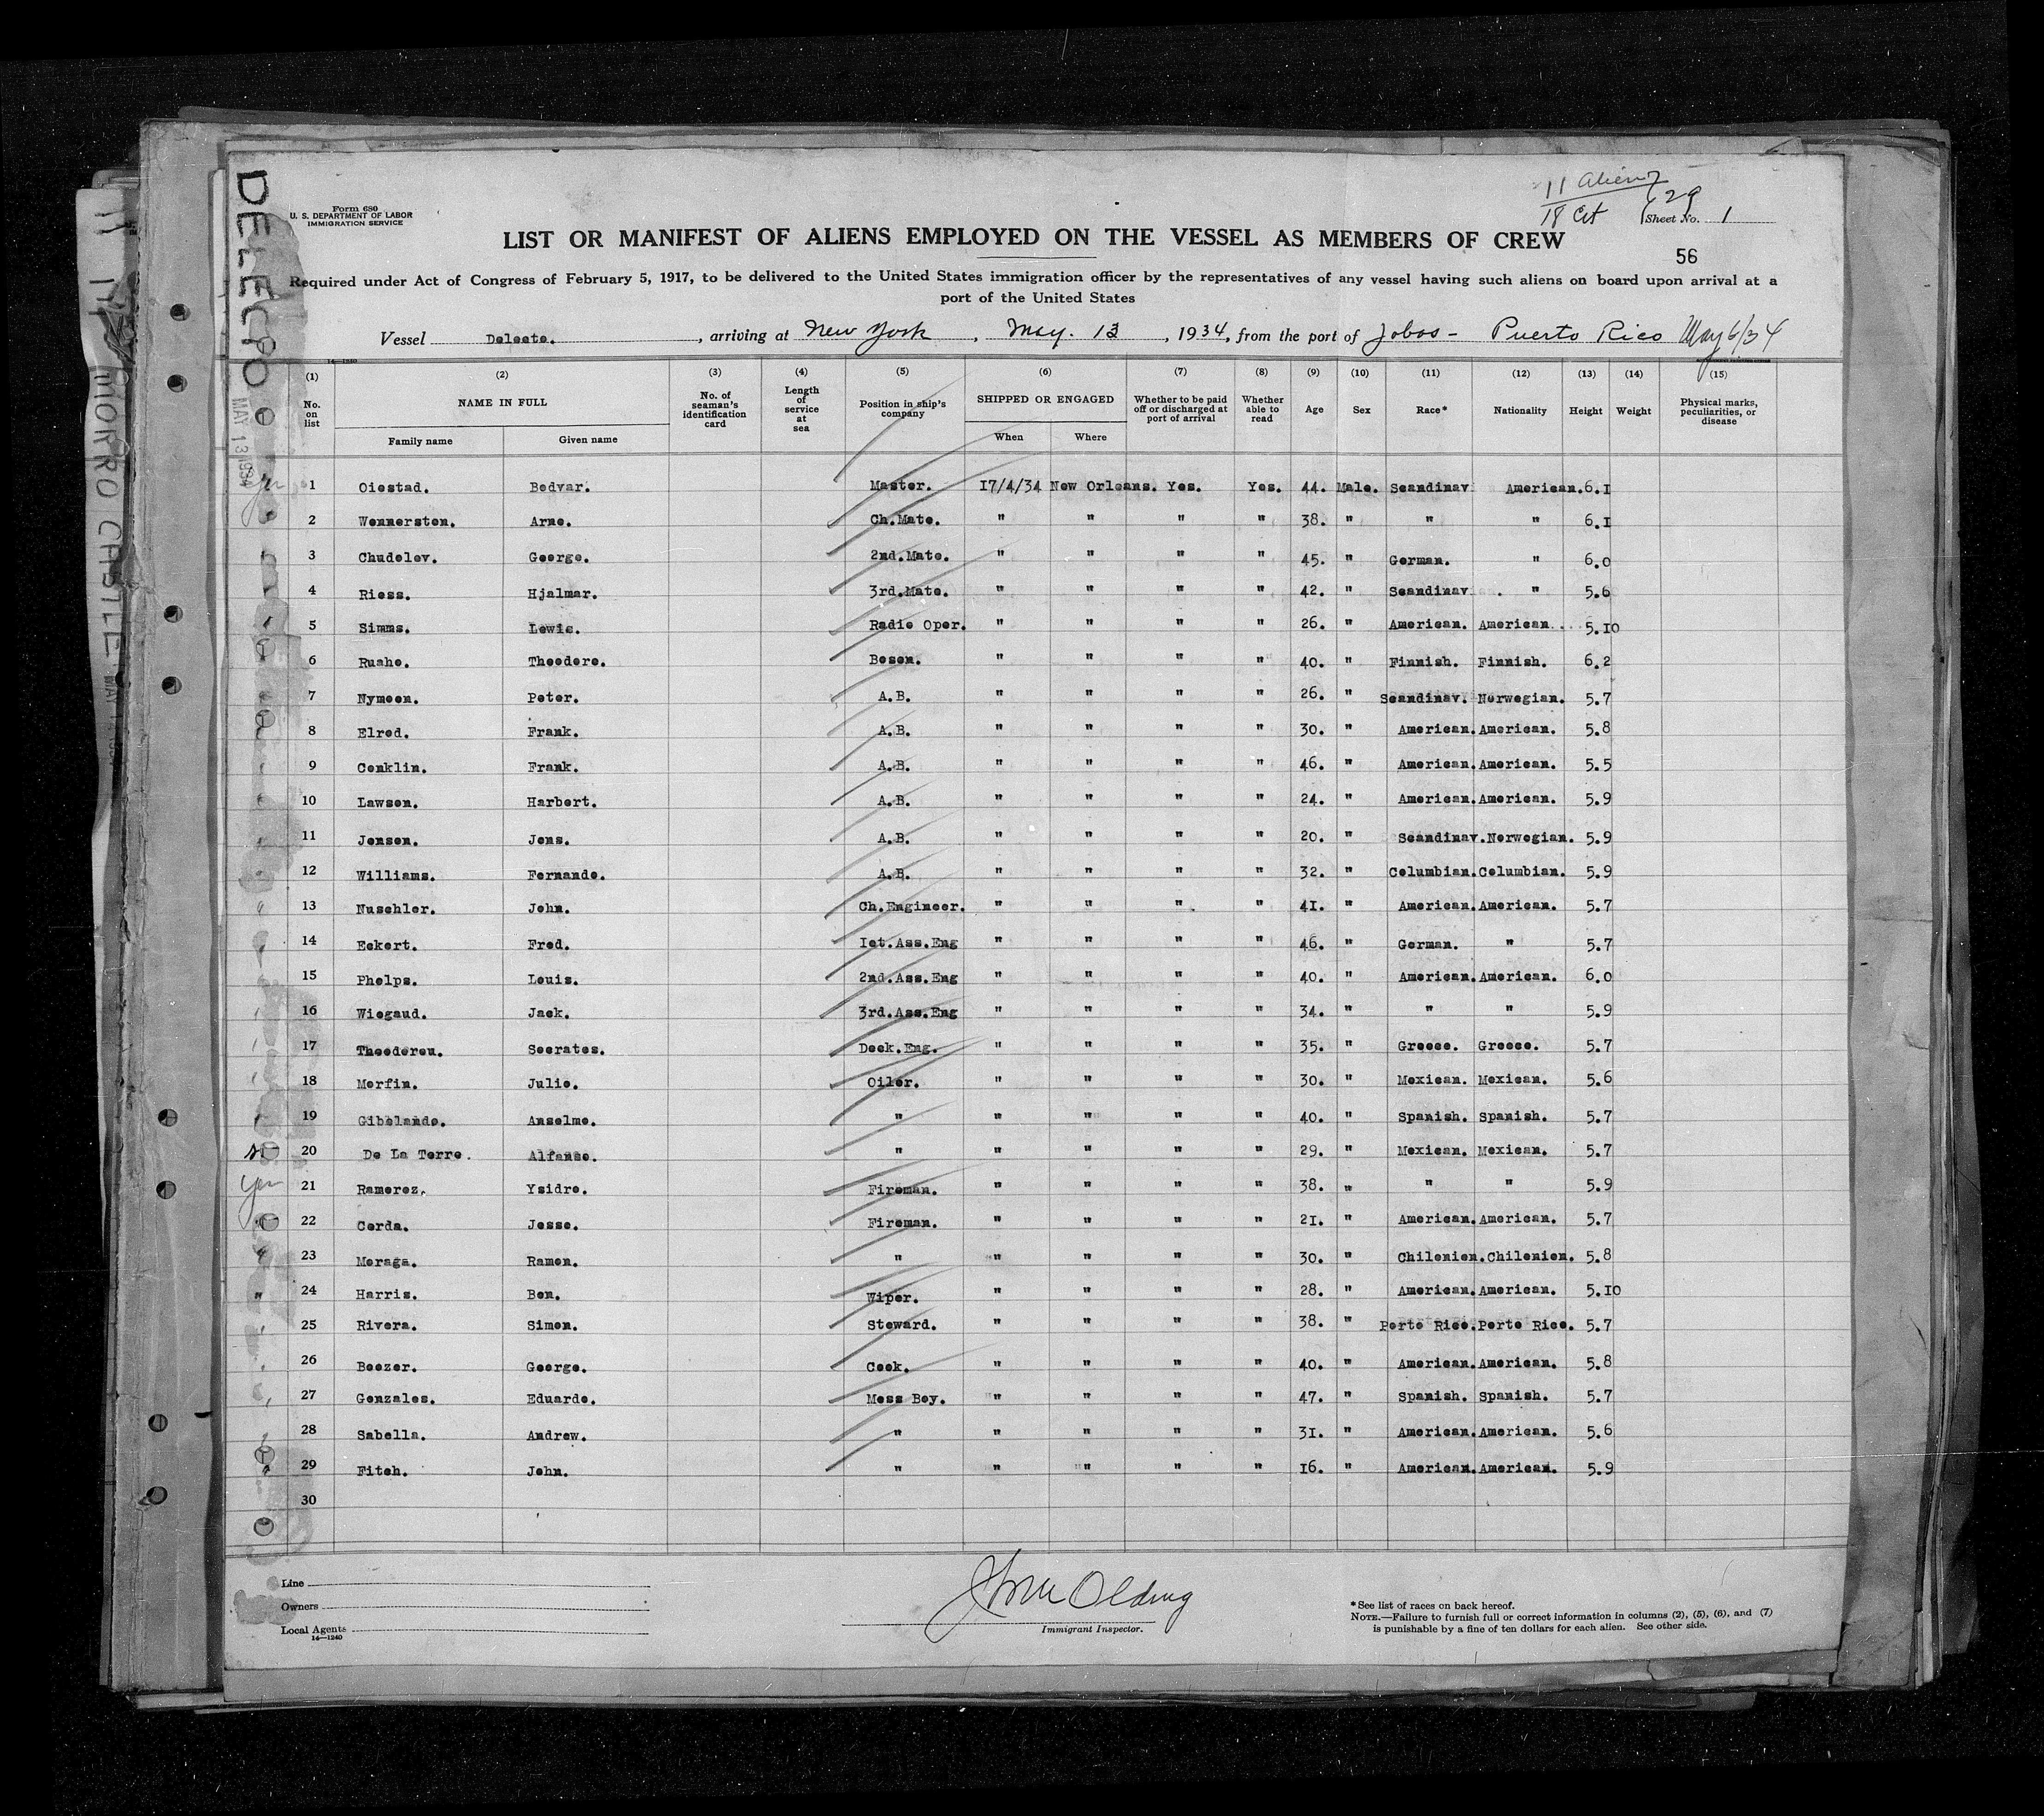 DELECTO
MAY 13 1934
MORRO CASTLE
Form 680
U. S. DEPARTMENT OF LABOR
IMMIGRATION SERVICE
11 Aliens
18 Cit
29
Sheet No. 1
LIST OR MANIFEST OF ALIENS EMPLOYED ON THE VESSEL AS MEMBERS OF CREW
56
Required under Act of Congress of February 5, 1917, to be delivered to the United States immigration officer by the representatives of any vessel having such aliens on board upon arrival at a
port of the United States
Vessel Delecto. , arriving at New York , May. 13 , 1934, from the port of Jobos - Puerto Rico May 6/34
14—1240
(1) (2) (3) (4) (5) (6) (7) (8) (9) (10) (11) (12) (13) (14) (15)
No. on list NAME IN FULL Family name Given name No. of seaman's identification card Length of service at sea Position in ship's company SHIPPED OR ENGAGED When Where Whether to be paid off or discharged at port of arrival Whether able to read Age Sex Race* Nationality Height Weight Physical marks, peculiarities, or disease
1 Oiestad. Bedvar. Master. 17/4/34 New Orleans. Yes. Yes. 44. Male. Scandinav American. 6.1
2 Wennersten. Arne. Ch.Mate. " " " " 38. " " " 6.1
3 Chudelev. George. 2nd.Mate. " " " " 45. " German. " 6.0
4 Riess. Hjalmar. 3rd.Mate. " " " " 42. " Scandinav. " 5.6
5 Simms. Lewis. Radio Oper. " " " " 26. " American. American. 5.10
6 Ruaho. Theodore. Bosen. " " " " 40. " Finnish. Finnish. 6.2
7 Nymoen. Peter. A.B. " " " " 26. " Scandinav. Norwegian. 5.7
8 Elrod. Frank. A.B. " " " " 30. " American. American. 5.8
9 Conklin. Frank. A.B. " " " " 46. " American. American. 5.5
10 Lawson. Harbert. A.B. " " " " 24. " American. American. 5.9
11 Jensen. Jens. A.B. " " " " 20. " Scandinav. Norwegian. 5.9
12 Williams. Fernando. A.B. " " " " 32. " Columbian. Columbian. 5.9
13 Nuschler. John. Ch.Engineer. " " " " 41. " American. American. 5.7
14 Eckert. Fred. 1st.Ass.Eng " " " " 46. " German. " 5.7
15 Phelps. Louis. 2nd.Ass.Eng " " " " 40. " American. American. 6.0
16 Wiegaud. Jack. 3rd.Ass.Eng " " " " 34. " " " 5.9
17 Theoderou. Socrates. Deck.Eng. " " " " 35. " Greece. Greece. 5.7
18 Morfin. Julio. Oiler. " " " " 30. " Mexican. Mexican. 5.6
19 Gibelando. Anselmo. " " " " " 40. " Spanish. Spanish. 5.7
20 De La Torre. Alfanso. " " " " " 29. " Mexican. Mexican. 5.7
21 Ramerez. Ysidro. Fireman. " " " " 38. " " " 5.9
22 Cerda. Jesse. Fireman. " " " " 21. " American. American. 5.7
23 Moraga. Ramon. " " " " " 30. " Chilenien. Chilenien. 5.8
24 Harris. Ben. Wiper. " " " " 28. " American. American. 5.10
25 Rivera. Simon. Steward. " " " " 38. " Porto Rico. Porto Rico. 5.7
26 Boozer. George. Cook. " " " " 40. " American. American. 5.8
27 Gonzales. Eduardo. Mess Boy. " " " " 47. " Spanish. Spanish. 5.7
28 Sabella. Andrew. " " " " " 31. " American. American. 5.6
29 Fitch. John. " " " " " 16. " American. American. 5.9
30
Line
Owners
Local Agents
14—1240
Olding
Immigrant Inspector.
*See list of races on back hereof.
NOTE.—Failure to furnish full or correct information in columns (2), (5), (6), and (7)
is punishable by a fine of ten dollars for each alien. See other side.